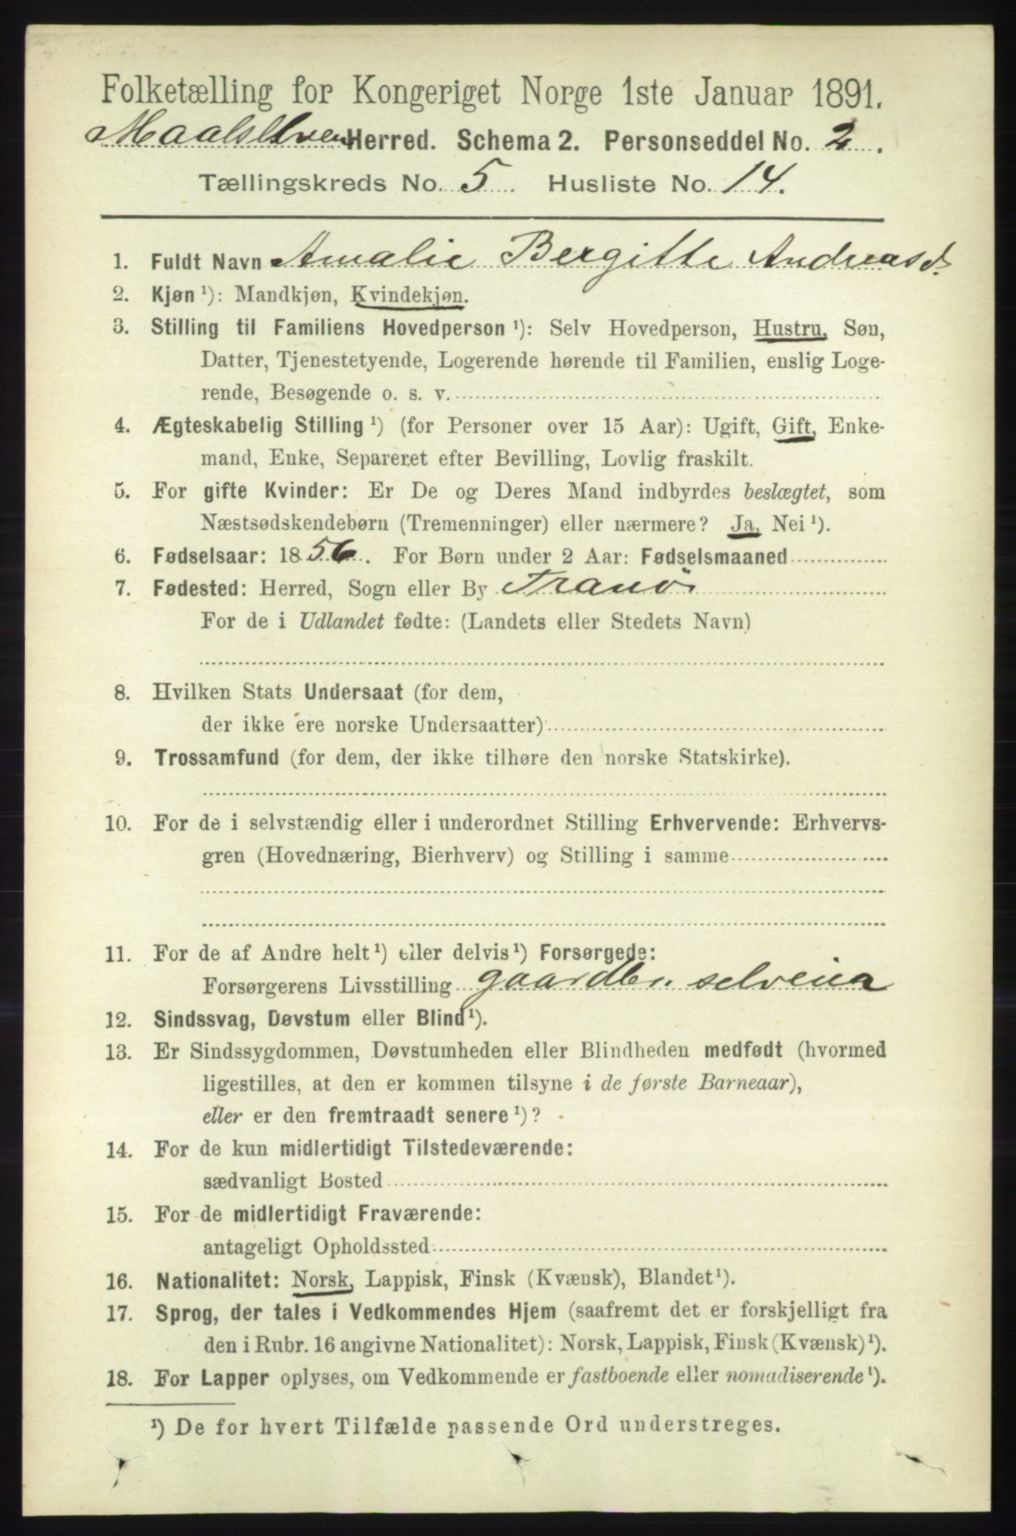 Folketælling for Kongeriget Norge 1ste Januar 1891.
Maalselven Herred. Schema 2. Personseddel No. 2.
Tællingskreds No. 5 Husliste No. 14.
1. Fuldt Navn Amalie Bergitte Andreasd.
2. Kjøn ¹): Mandkjøn, Kvindekjøn.
3. Stilling til Familiens Hovedperson ¹): Selv Hovedperson, Hustru, Søn,
Datter, Tjenestetyende, Logerende hørende til Familien, enslig Loge-
rende, Besøgende o. s. v.
4. Ægteskabelig Stilling ¹) (for Personer over 15 Aar): Ugift, Gift, Enke-
mand, Enke, Separeret efter Bevilling, Lovlig fraskilt.
5. For gifte Kvinder: Er De og Deres Mand indbyrdes beslægtet, som
Næstsødskendebørn (Tremenninger) eller nærmere? Ja, Nei ¹).
6. Fødselsaar: 1856. For Børn under 2 Aar: Fødselsmaaned
7. Fødested: Herred, Sogn eller By Tranö
For de i Udlandet fødte: (Landets eller Stedets Navn)
8. Hvilken Stats Undersaat (for dem,
der ikke ere norske Undersaatter)
9. Trossamfund (for dem, der ikke tilhøre den norske Statskirke).
10. For de i selvstændig eller i underordnet Stilling Erhvervende: Erhvervs-
gren (Hovednæring, Bierhverv) og Stilling i samme
11. For de af Andre helt ¹) eller delvis ¹) Forsørgede:
Forsørgerens Livsstilling gaardbr. selveier
12. Sindssvag, Døvstum eller Blind ¹).
13. Er Sindssygdommen, Døvstumheden eller Blindheden medfødt (hvormed
ligestilles, at den er kommen tilsyne i de første Barneaar),
eller er den fremtraadt senere ¹)?
14. For de kun midlertidigt Tilstedeværende:
sædvanligt Bosted
15. For de midlertidigt Fraværende:
antageligt Opholdssted
16. Nationalitet: Norsk, Lappisk, Finsk (Kvænsk), Blandet ¹).
17. Sprog, der tales i Vedkommendes Hjem (saafremt det er forskjelligt fra
den i Rubr. 16 angivne Nationalitet): Norsk, Lappisk, Finsk (Kvænsk) ¹).
18. For Lapper oplyses, om Vedkommende er fastboende eller nomadiserende ¹).
¹) De for hvert Tilfælde passende Ord understreges.